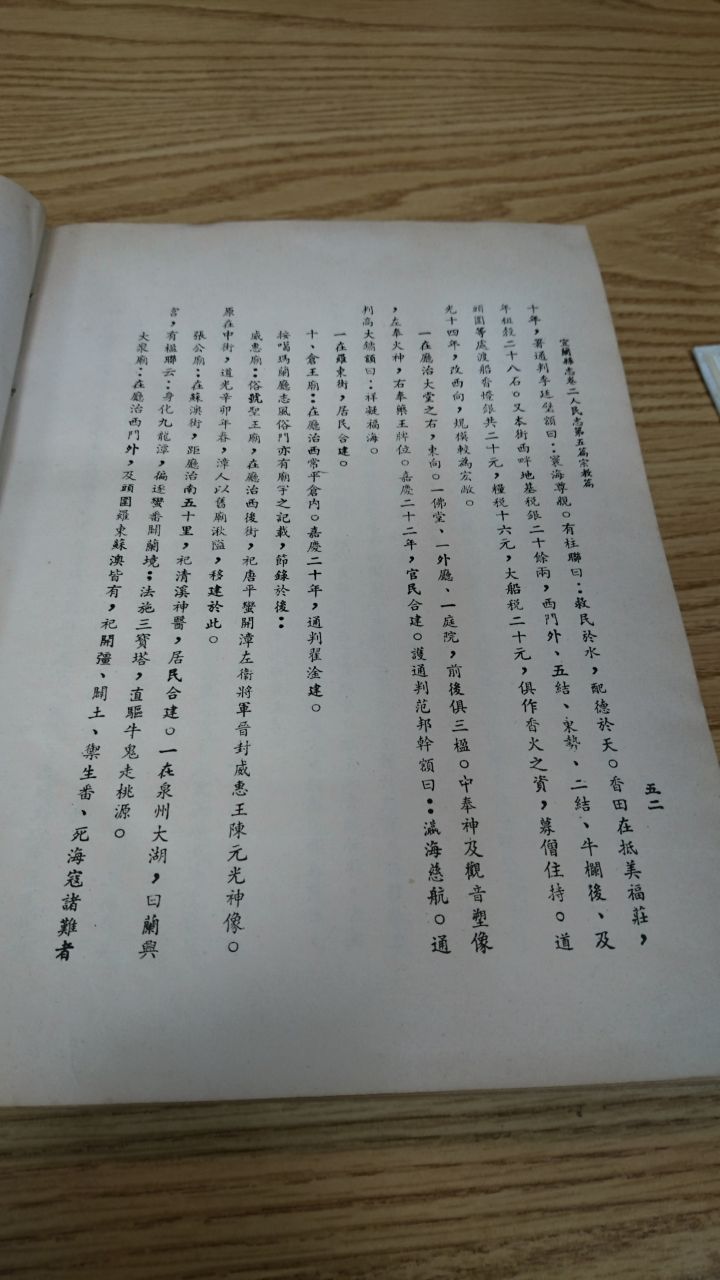 宜蘭縣志卷二人民志第五篇宗教篇
五二
十年，署通判李廷璧額曰：寰海尊親。有柱聯曰：救民於水，配德於天。香田在抵美福莊，
年租穀二十八石。又本街西畔地基稅銀二十餘兩，西門外、五結、東勢、二結、牛欄後、及
頭圍等處渡船香燈銀共二十元，糧稅十六元，大船稅二十元，俱作香火之資，募僧住持。道
光十四年，改西向，規模較為宏敞。
一在廳治大堂之右，東向。一佛堂、一外廳、一庭院，前後俱三楹。中奉神及觀音塑像
，左奉火神，右奉藥王牌位。嘉慶二十二年，官民合建。護通判范邦幹額曰：瀛海慈航。通
判高大鏞額曰：祥凝福海。
一在羅東街，居民合建。
十、倉王廟：在廳治西常平倉內。嘉慶二十年，通判翟淦建。
按噶瑪蘭廳志風俗門亦有廟宇之記載，節錄於後：
威惠廟：俗號聖王廟，在廳治西後街，祀唐平蠻開漳左衛將軍晉封威惠王陳元光神像。
原在中街，道光辛卯年春，漳人以舊廟湫隘，移建於此。
張公廟：在蘇澳街，距廳治南五十里，祀清溪神醫，居民合建。一在泉州大湖，曰蘭興
宮，有楹聯云：身化九龍潭，偏逐蠻番闢蘭境：法施三寶塔，直驅牛鬼走桃源。
大眾廟：在廳治西門外，及頭圍羅東蘇澳皆有，祀開疆、闢土、禦生番、死海寇諸難者